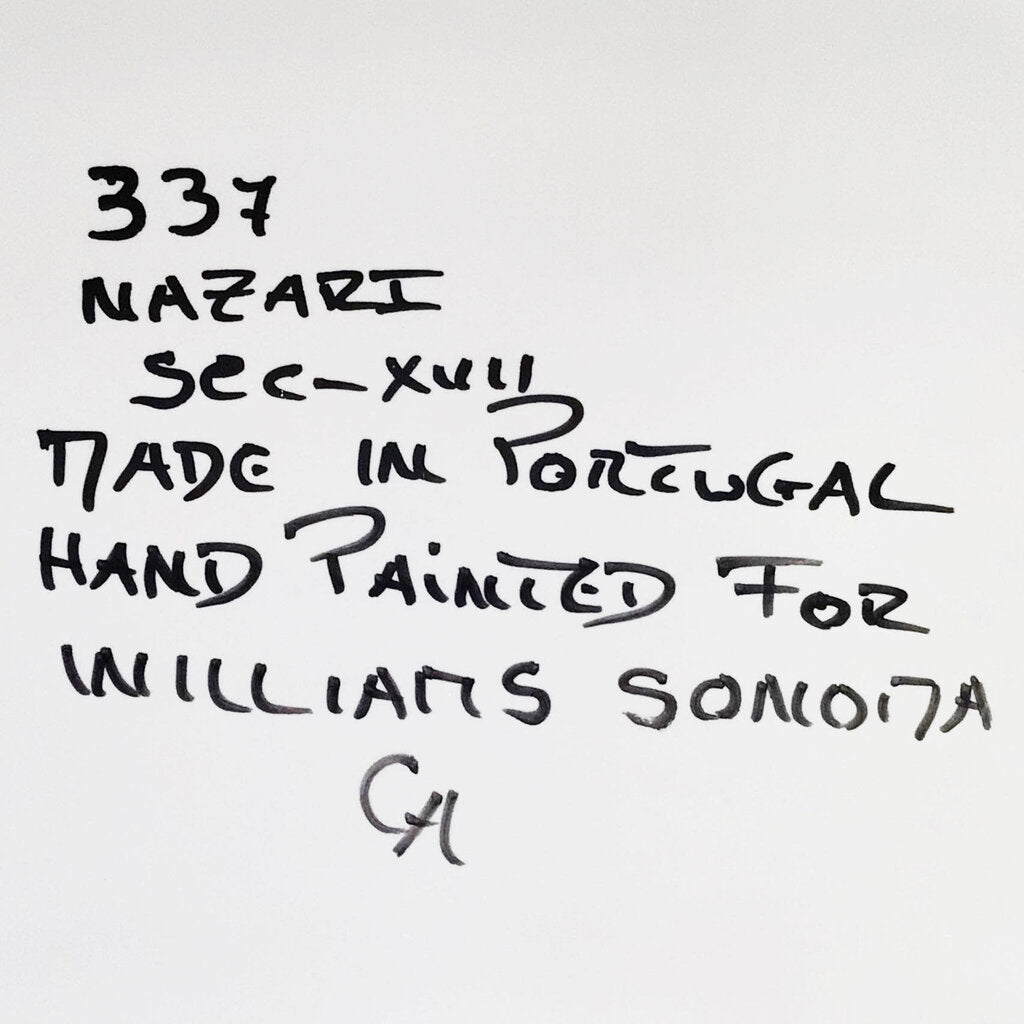 337
NAZARI
SEC-XVII
MADE IN PORTUGAL
HAND PAINTED FOR
WILLIAMS SONOMA
CA